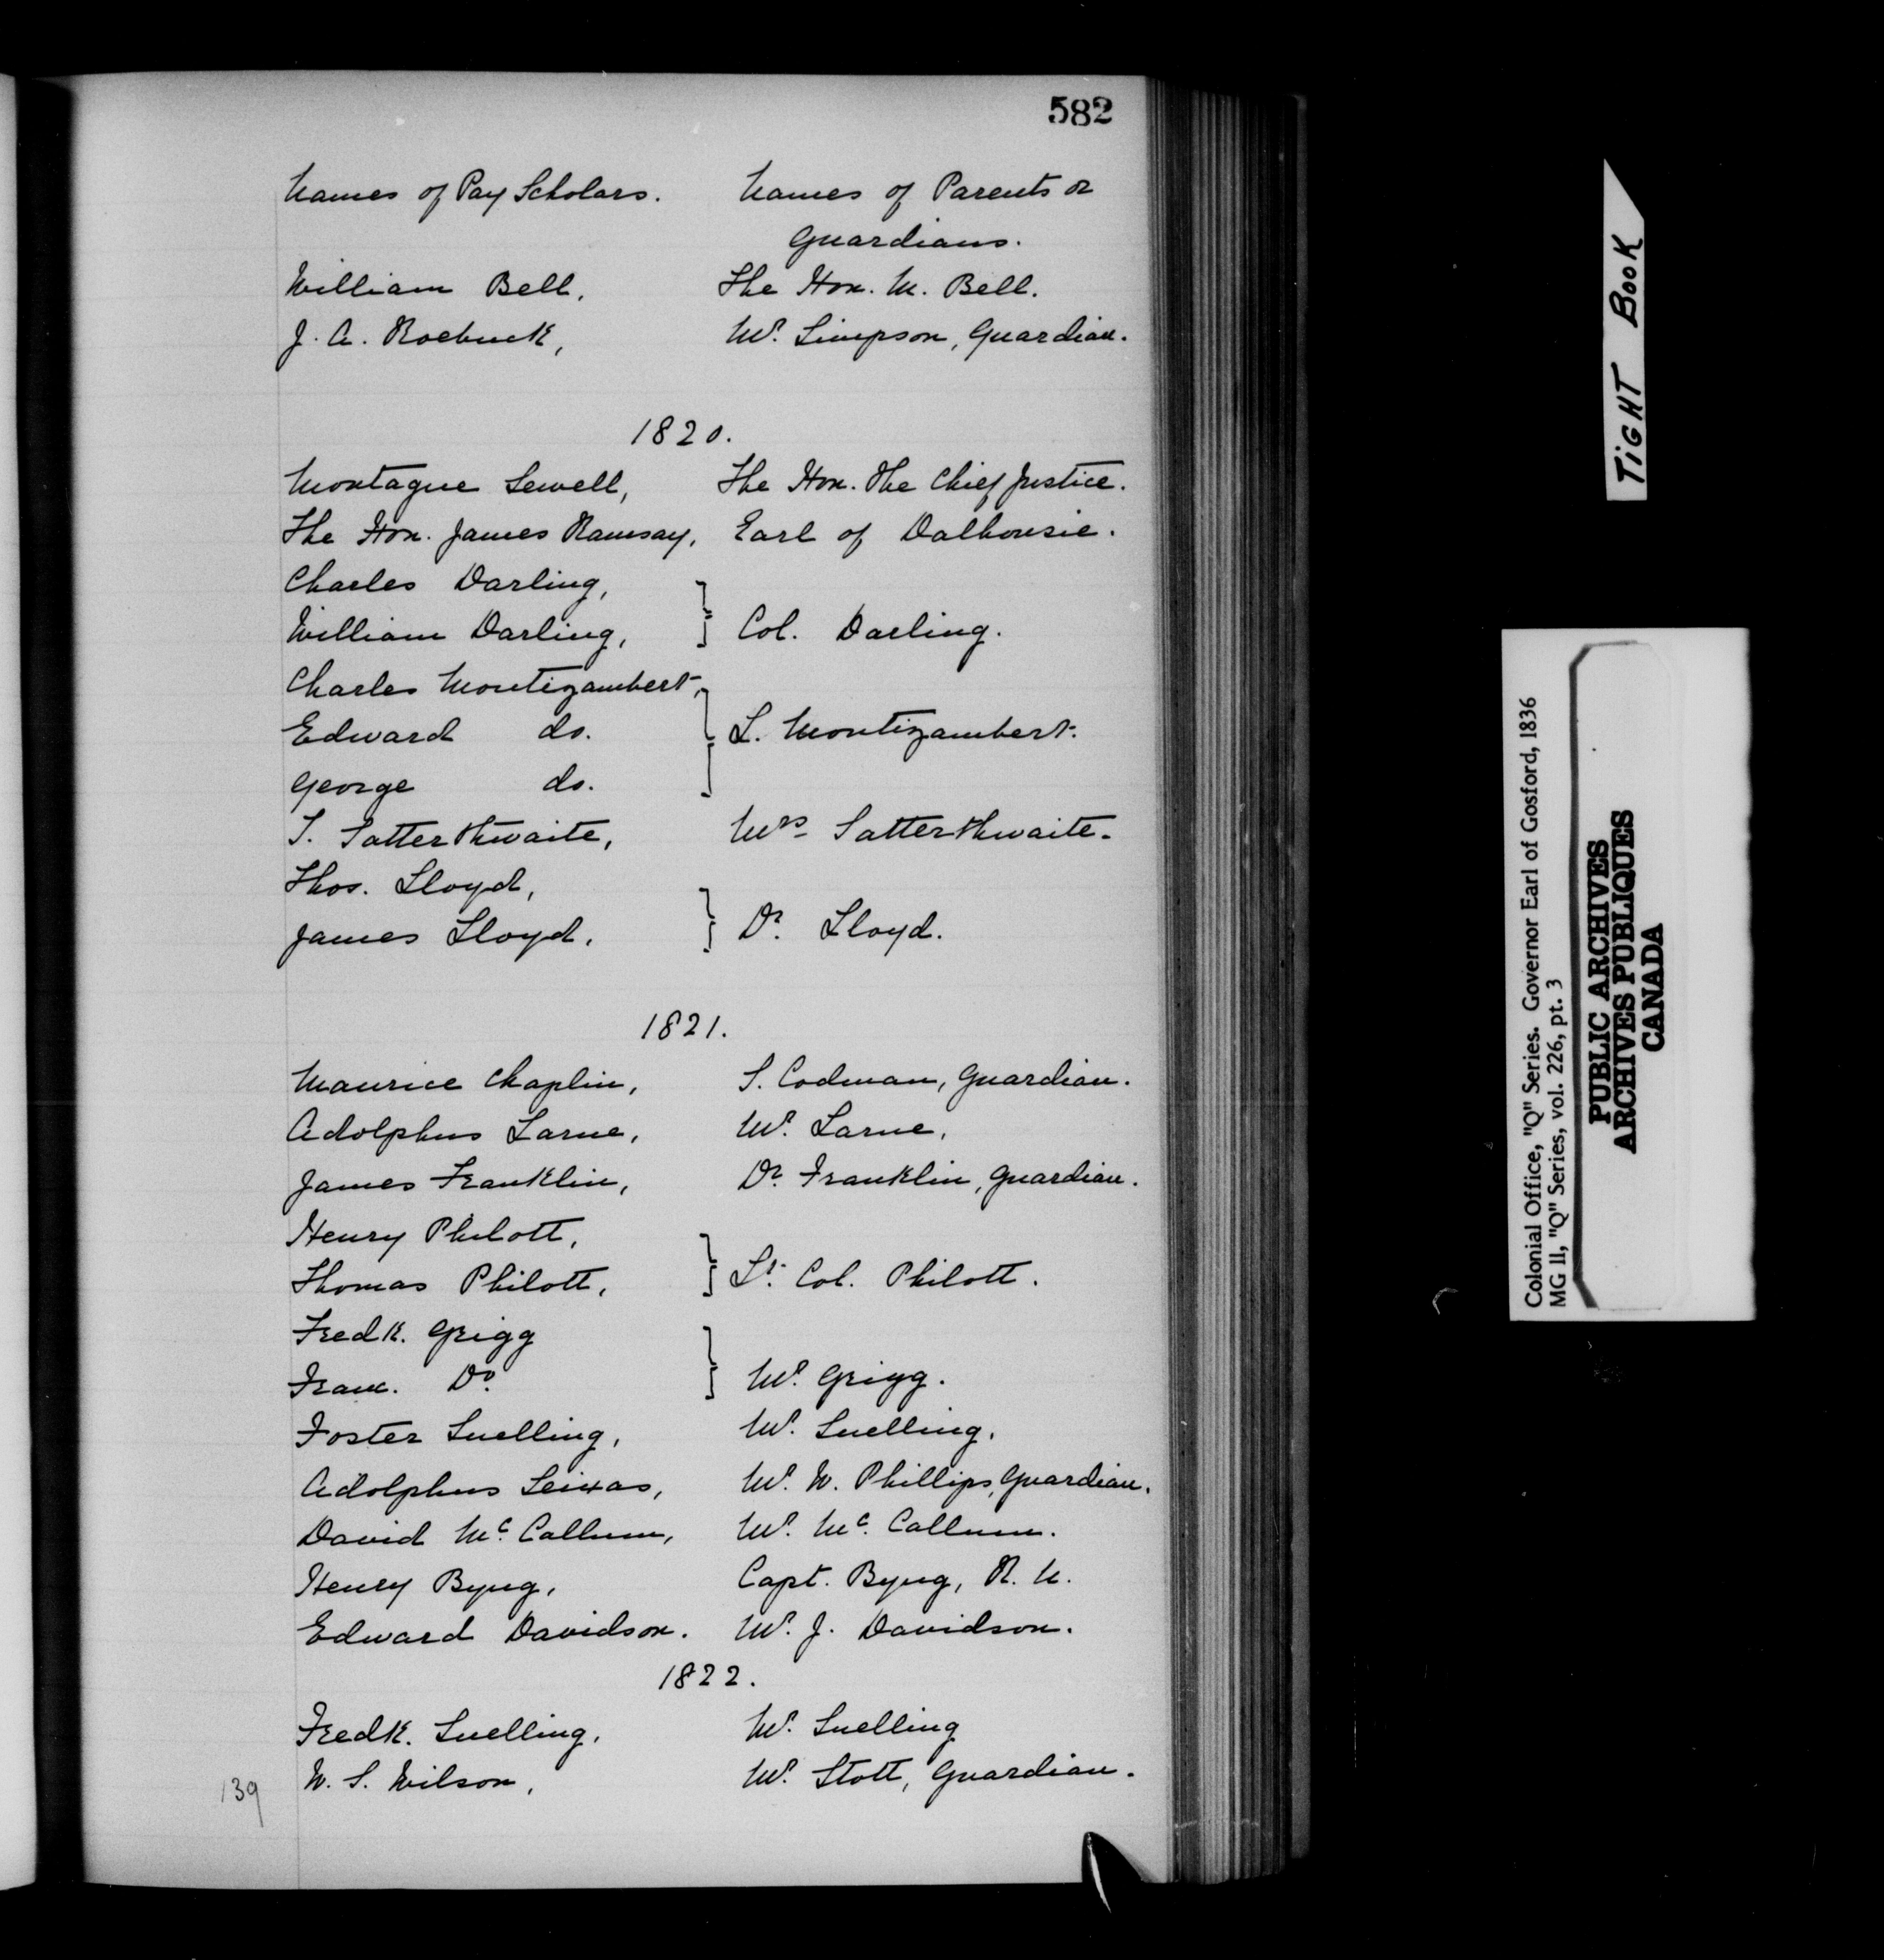 582
Names of Pay Scholars. Names of Parents or
Guardians.
William Bell, The Hon. M. Bell.
J. A. Roebuck, Mr. Simpson, Guardian.
1820.
Montague Sewell, The Hon. the Chief Justice.
The Hon. James Ramsay, Earl of Dalhousie.
Charles Darling,
William Darling, } Col. Darling.
Charles Montizambert,
Edward do. } L. Montizambert.
George do.
S. Satterthwaite, Mrs Satterthwaite.
Thos. Lloyd,
James Lloyd. } Dr. Lloyd.
1821.
Maurice Chaplin, S. Codman, Guardian.
Adolphus Larue, Mr. Larue,
James Franklin, Dr. Franklin, Guardian.
Henry Philott,
Thomas Philott, } Lt. Col. Philott.
Fredk. Grigg
Franc. Do. } Mr. Grigg.
Foster Snelling, Mr. Snelling.
Adolphus Seixas, Mr. W. Phillips, Guardian.
David Mc. Callum, Mr. Mc. Callum.
Henry Byng, Capt. Byng, R. N.
Edward Davidson. Mr. J. Davidson.
1822.
Fredk. Snelling, Mr. Snelling
W. S. Wilson, Mr. Stott, Guardian.
139
TIGHT BOOK
Colonial Office, "Q" Series. Governor Earl of Gosford, 1836
MG 11, "Q" Series, vol. 226, pt. 3
PUBLIC ARCHIVES
ARCHIVES PUBLIQUES
CANADA